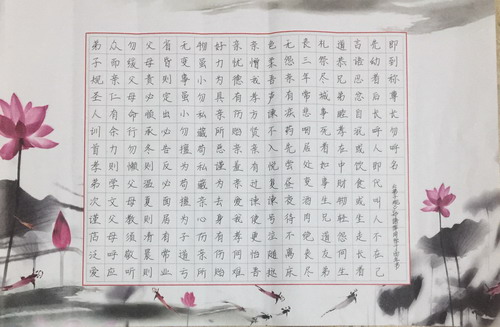 弟子规圣人训首孝弟次谨信泛爱
众而亲仁有余力则学文父母呼应
勿缓父母命行勿懒父母教须敬听
父母责须顺承冬则温夏则凊晨则
省昏则定出必告反必面居有常业
无变事虽小勿擅为苟擅为子道亏
物虽小勿私藏苟私藏亲心伤亲所
好力为具亲所恶谨为去身有伤贻
亲忧德有伤贻亲羞亲爱我孝何难
亲憎我孝方贤亲有过谏使更怡吾
色柔吾声谏不入悦复谏号泣随挞
无怨亲有疾药先尝昼夜侍不离床
丧三年常悲咽居处变酒肉绝丧尽
礼祭尽诚事死者如事生兄道友弟
道恭兄弟睦孝在中财物轻怨何生
言语忍忿自泯或饮食或坐走长者
先幼者后长呼人即代叫人不在己
即到称尊长勿呼名